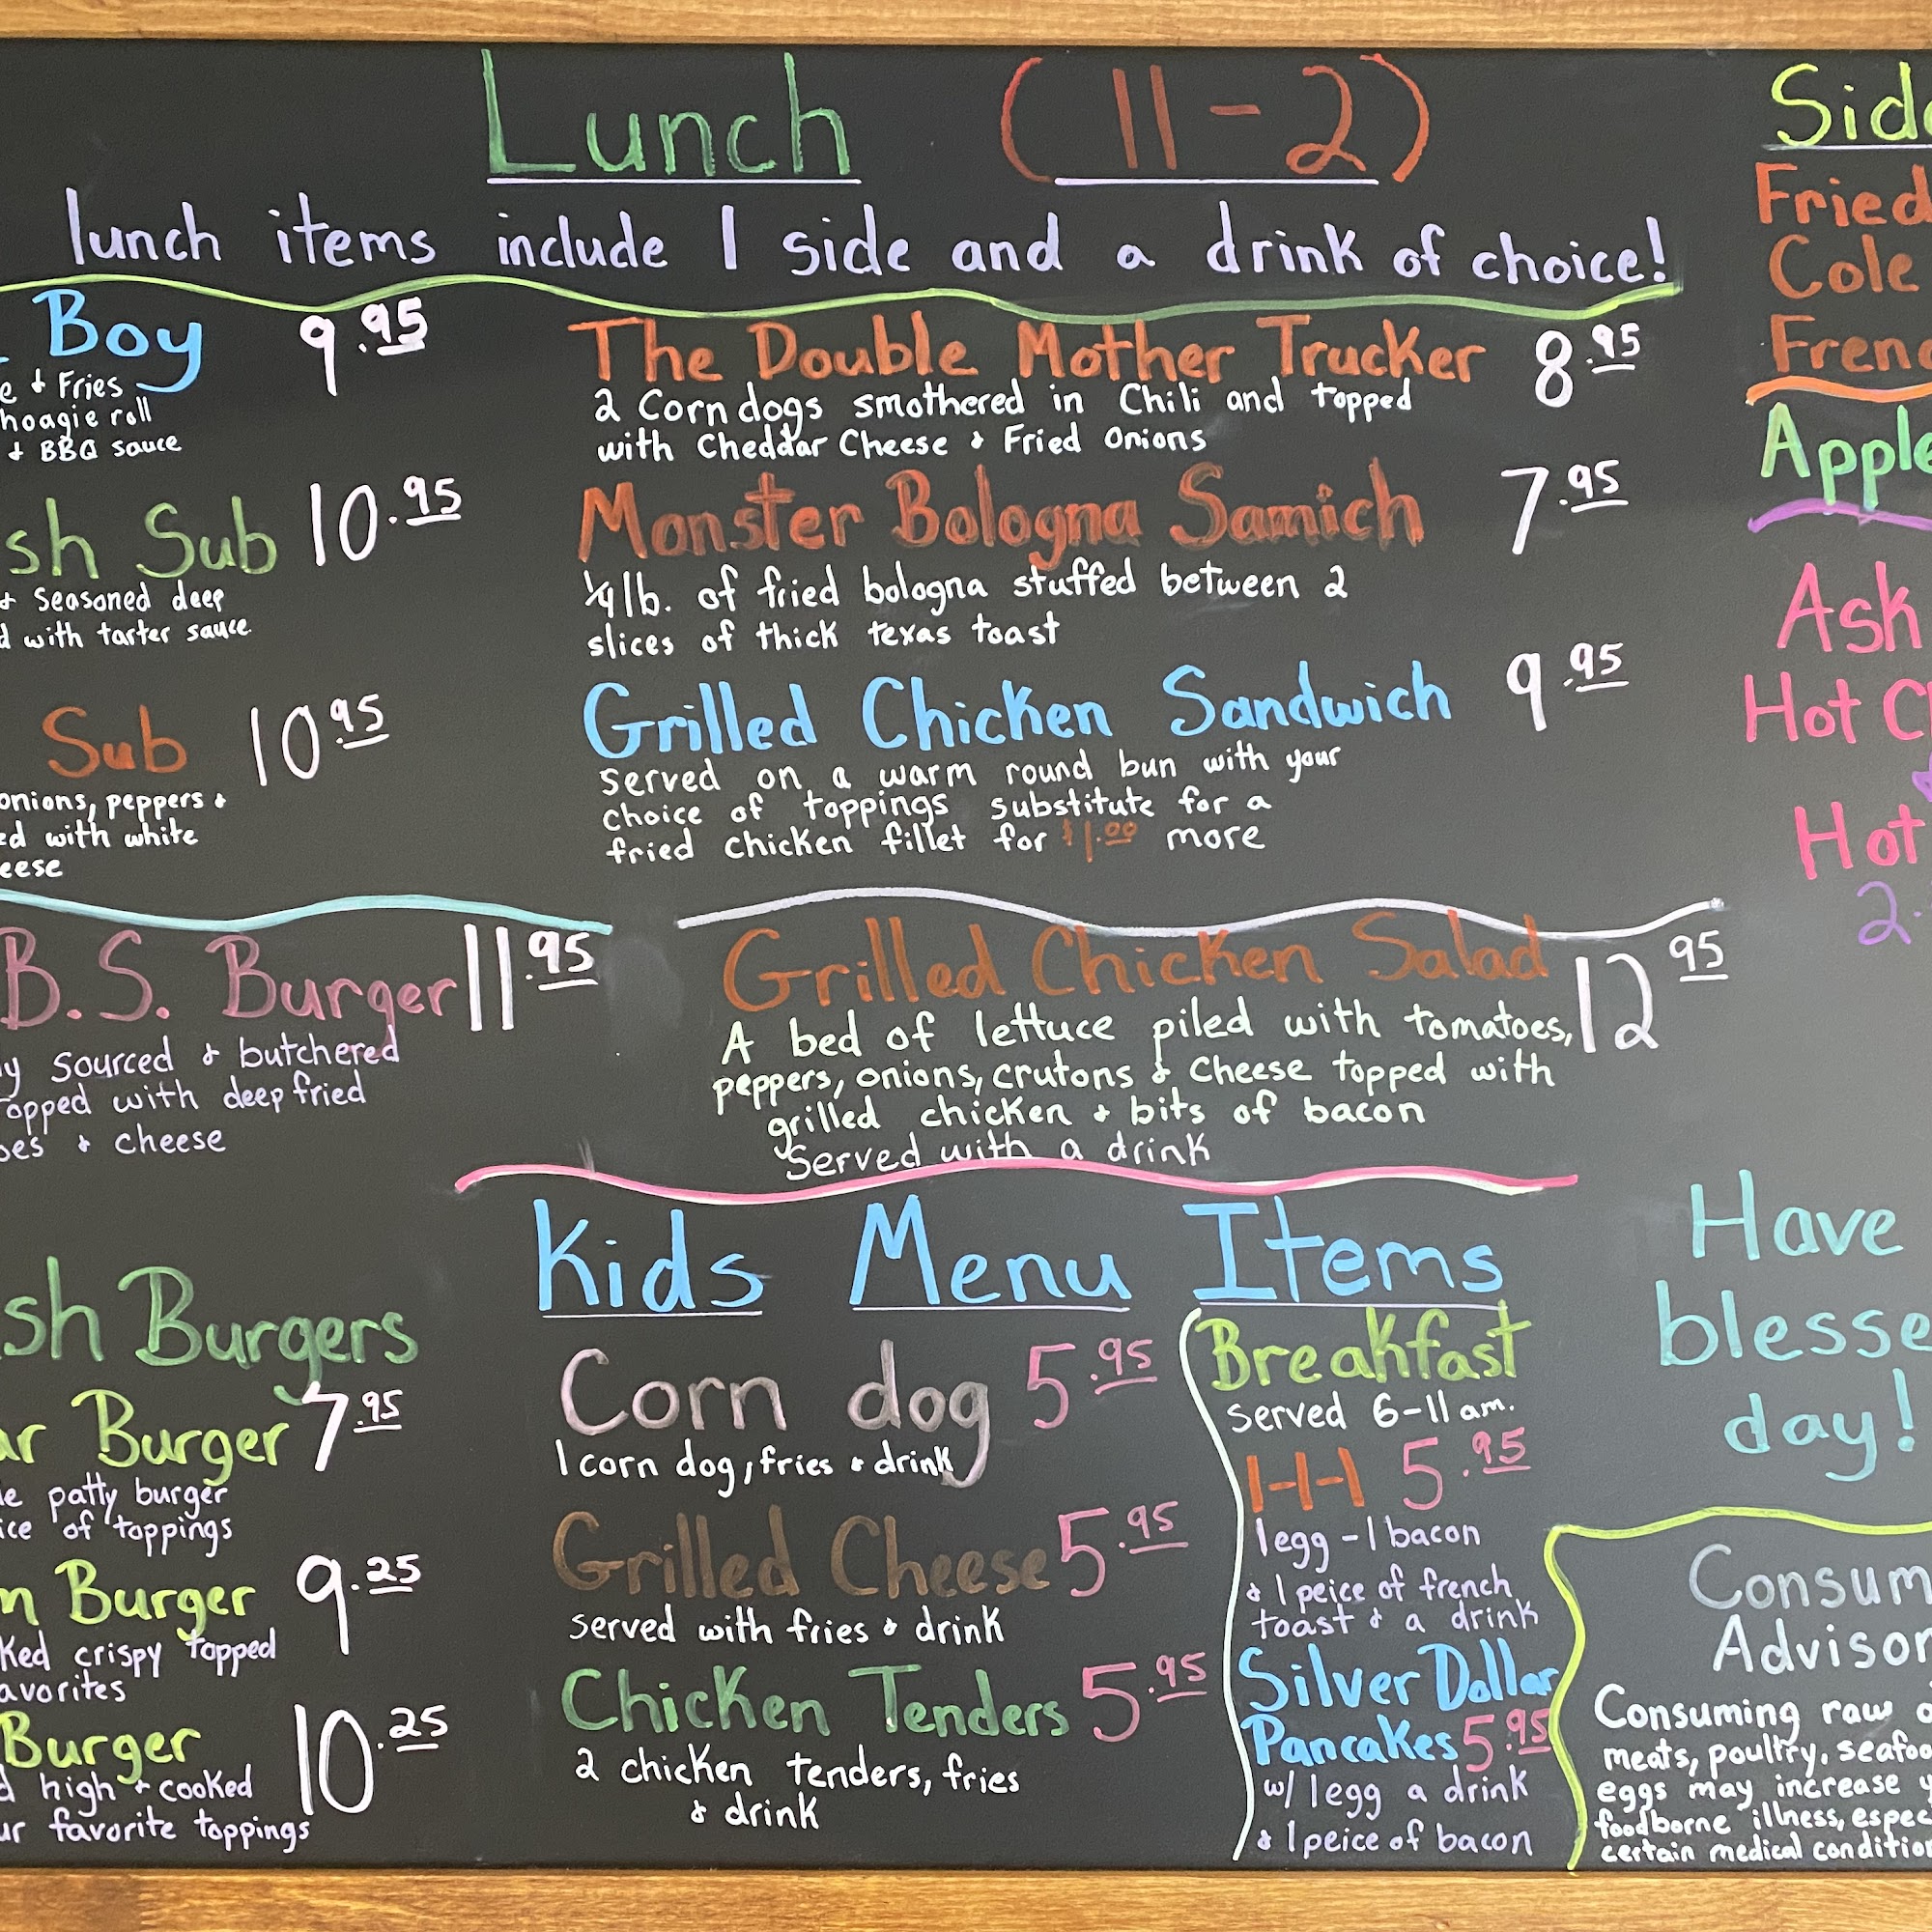 Lunch (11-2)
lunch items include 1 side and a drink of choice!
Boy 9.95
e & Fries
hoagie roll
& BBQ sauce
sh Sub 10.95
& seasoned deep
d with tarter sauce
Sub 10.95
onions, peppers &
ed with white
eese
B.S. Burger 11.95
y sourced & butchered
opped with deep fried
oes & cheese
sh Burgers
ar Burger 7.95
le patty burger
ice of toppings
n Burger 9.25
ked crispy topped
avorites
Burger 10.25
d high & cooked
ur favorite toppings
The Double Mother Trucker 8.95
2 Corn dogs smothered in Chili and topped
with Cheddar Cheese & Fried Onions
Monster Bologna Samich 7.95
1/4 lb. of fried bologna stuffed between 2
slices of thick texas toast
Grilled Chicken Sandwich 9.95
served on a warm round bun with your
choice of toppings substitute for a
fried chicken fillet for $1.00 more
Grilled Chicken Salad 12.95
A bed of lettuce piled with tomatoes,
peppers, onions, crutons & cheese topped with
grilled chicken & bits of bacon
Served with a drink
Kids Menu Items
Corn dog 5.95
1 corn dog, fries & drink
Grilled Cheese 5.95
served with fries & drink
Chicken Tenders 5.95
2 chicken tenders, fries
& drink
Breakfast
served 6-11 am.
1-1-1 5.95
1 egg - 1 bacon
& 1 peice of french
toast & a drink
Silver Dollar
Pancakes 5.95
w/ 1 egg a drink
& 1 peice of bacon
Side
Fried
Cole
Fren
Apple
Ask
Hot C
Hot
2.
Have
blesse
day!
Consum
Advisor
Consuming raw o
meats, poultry, seafoo
eggs may increase y
foodborne illness, espec
certain medical condition